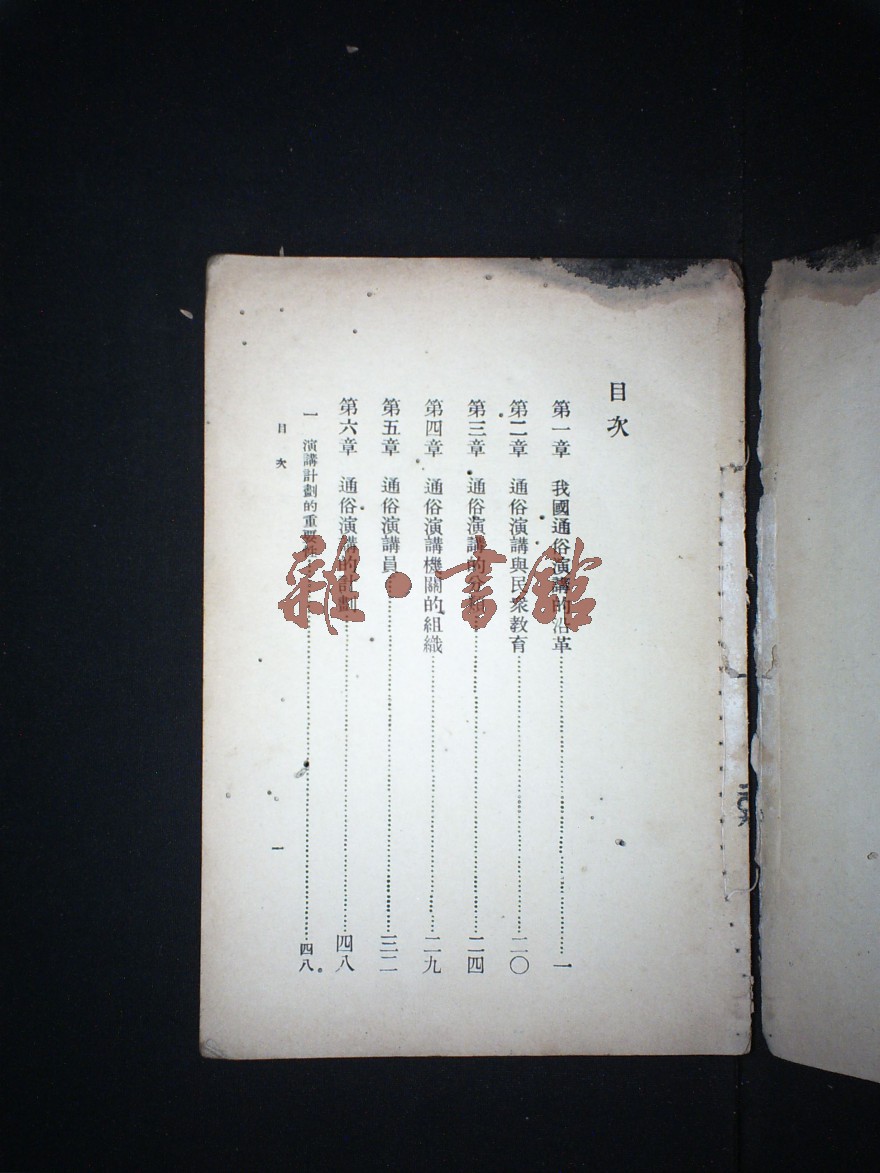 目次
第一章 我國通俗演講的沿革 一
第二章 通俗演講與民衆教育 二〇
第三章 通俗演講的分類 二四
第四章 通俗演講機關的組織 二九
第五章 通俗演講員 三二
第六章 通俗演講的計劃 四八
一 演講計劃的重要性 四八
目次 一
雜·書館